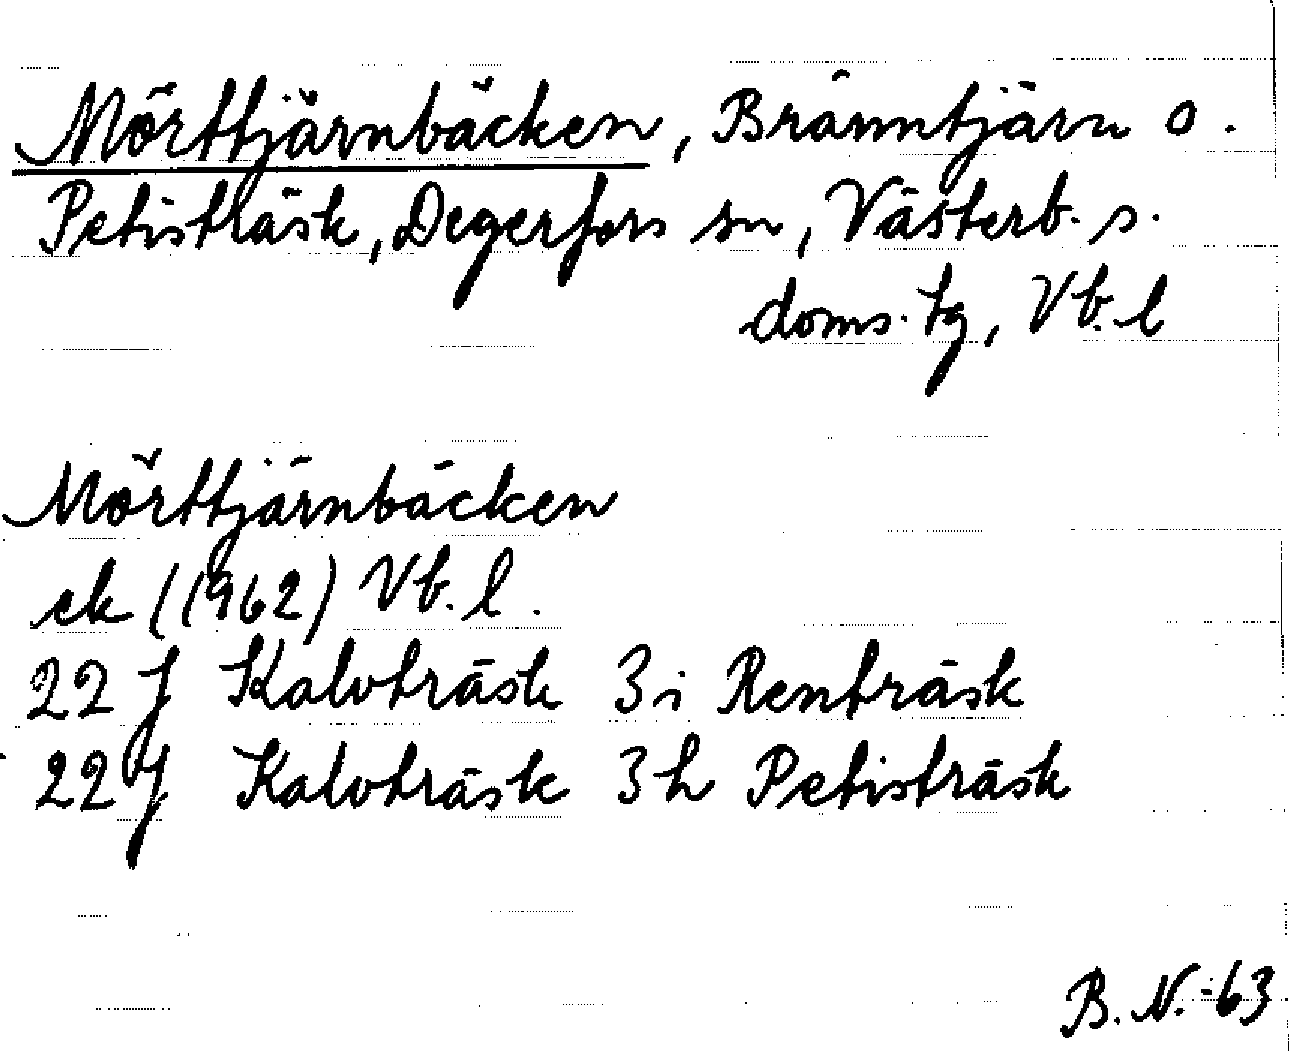 Mörttjärnbäcken, Brånntjärn o.
Petisträsk, Degerfors sn, Västerb. s.
doms. tg, Vb. l
Mörttjärnbäcken
ek (1962) Vb. l.
22 J Kalvträsk 3 i Renträsk
22 J Kalvträsk 3 h Petisträsk
B. N. -63